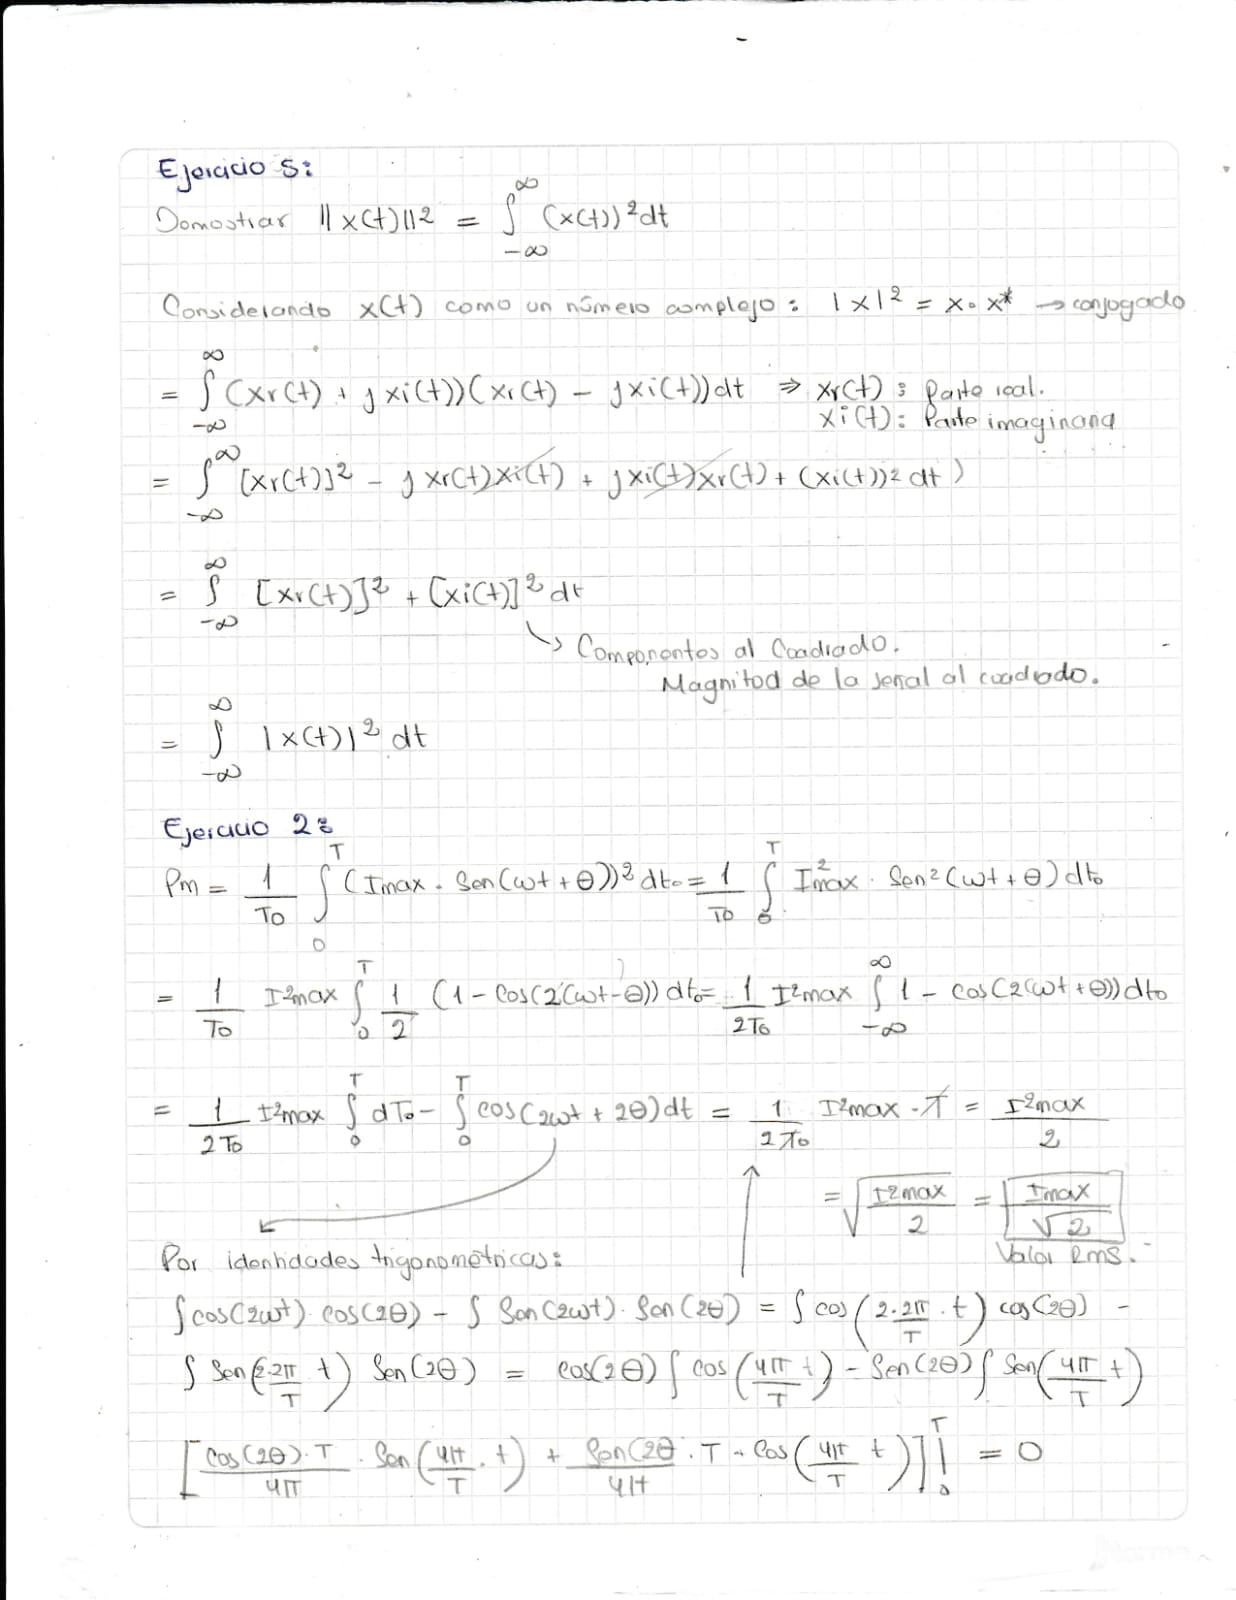 Ejercicio 5:
Demostrar ||x(t)||² = ∫_{-∞}^{∞} (x(t))² dt
Considerando x(t) como un número complejo: |x|² = x · x* → conjogado
= ∫_{-∞}^{∞} (xr(t) + jxi(t))(xr(t) - jxi(t))dt ⇒ xr(t): Parte real.
xi(t): Parte imaginaria
= ∫_{-∞}^{∞} [xr(t)]² - jxr(t)xi(t) + jxi(t)xr(t) + (xi(t))² dt)
= ∫_{-∞}^{∞} [xr(t)]² + [xi(t)]² dt
↳ Componentes al Cuadrado.
Magnitud de la señal al cuadrado.
= ∫_{-∞}^{∞} |x(t)|² dt
Ejercicio 2:
Pm = 1/T0 ∫_0^T (Imax · Sen(ωt + θ))² dt0 = 1/T0 ∫_0^T I²max · Sen²(ωt + θ) dt0
= 1/T0 I²max ∫_0^T 1/2 (1 - Cos(2(ωt - θ)) dt0 = 1/2T0 I²max ∫_{-∞}^{∞} 1 - cos(2(ωt + θ)) dt0
= 1/2T0 I²max ∫_0^T dT0 - ∫_0^T cos(2ωt + 2θ) dt = 1/2T0 I²max · T = I²max/2
= √(I²max/2) = Imax/√2
Valor Rms.
Por identidades trigonométricas:
∫ cos(2ωt) · cos(2θ) - ∫ Sen(2ωt) · Sen(2θ) = ∫ cos(2·2π/T · t) cos(2θ) -
∫ Sen(2·2π/T t) Sen(2θ) = cos(2θ) ∫ cos(4π/T t) - Sen(2θ) ∫ Sen(4π/T t)
[cos(2θ)·T/4π · Sen(4π/T · t) + Sen(2θ/4π · T · Cos(4π/T t)]|_0^T = 0